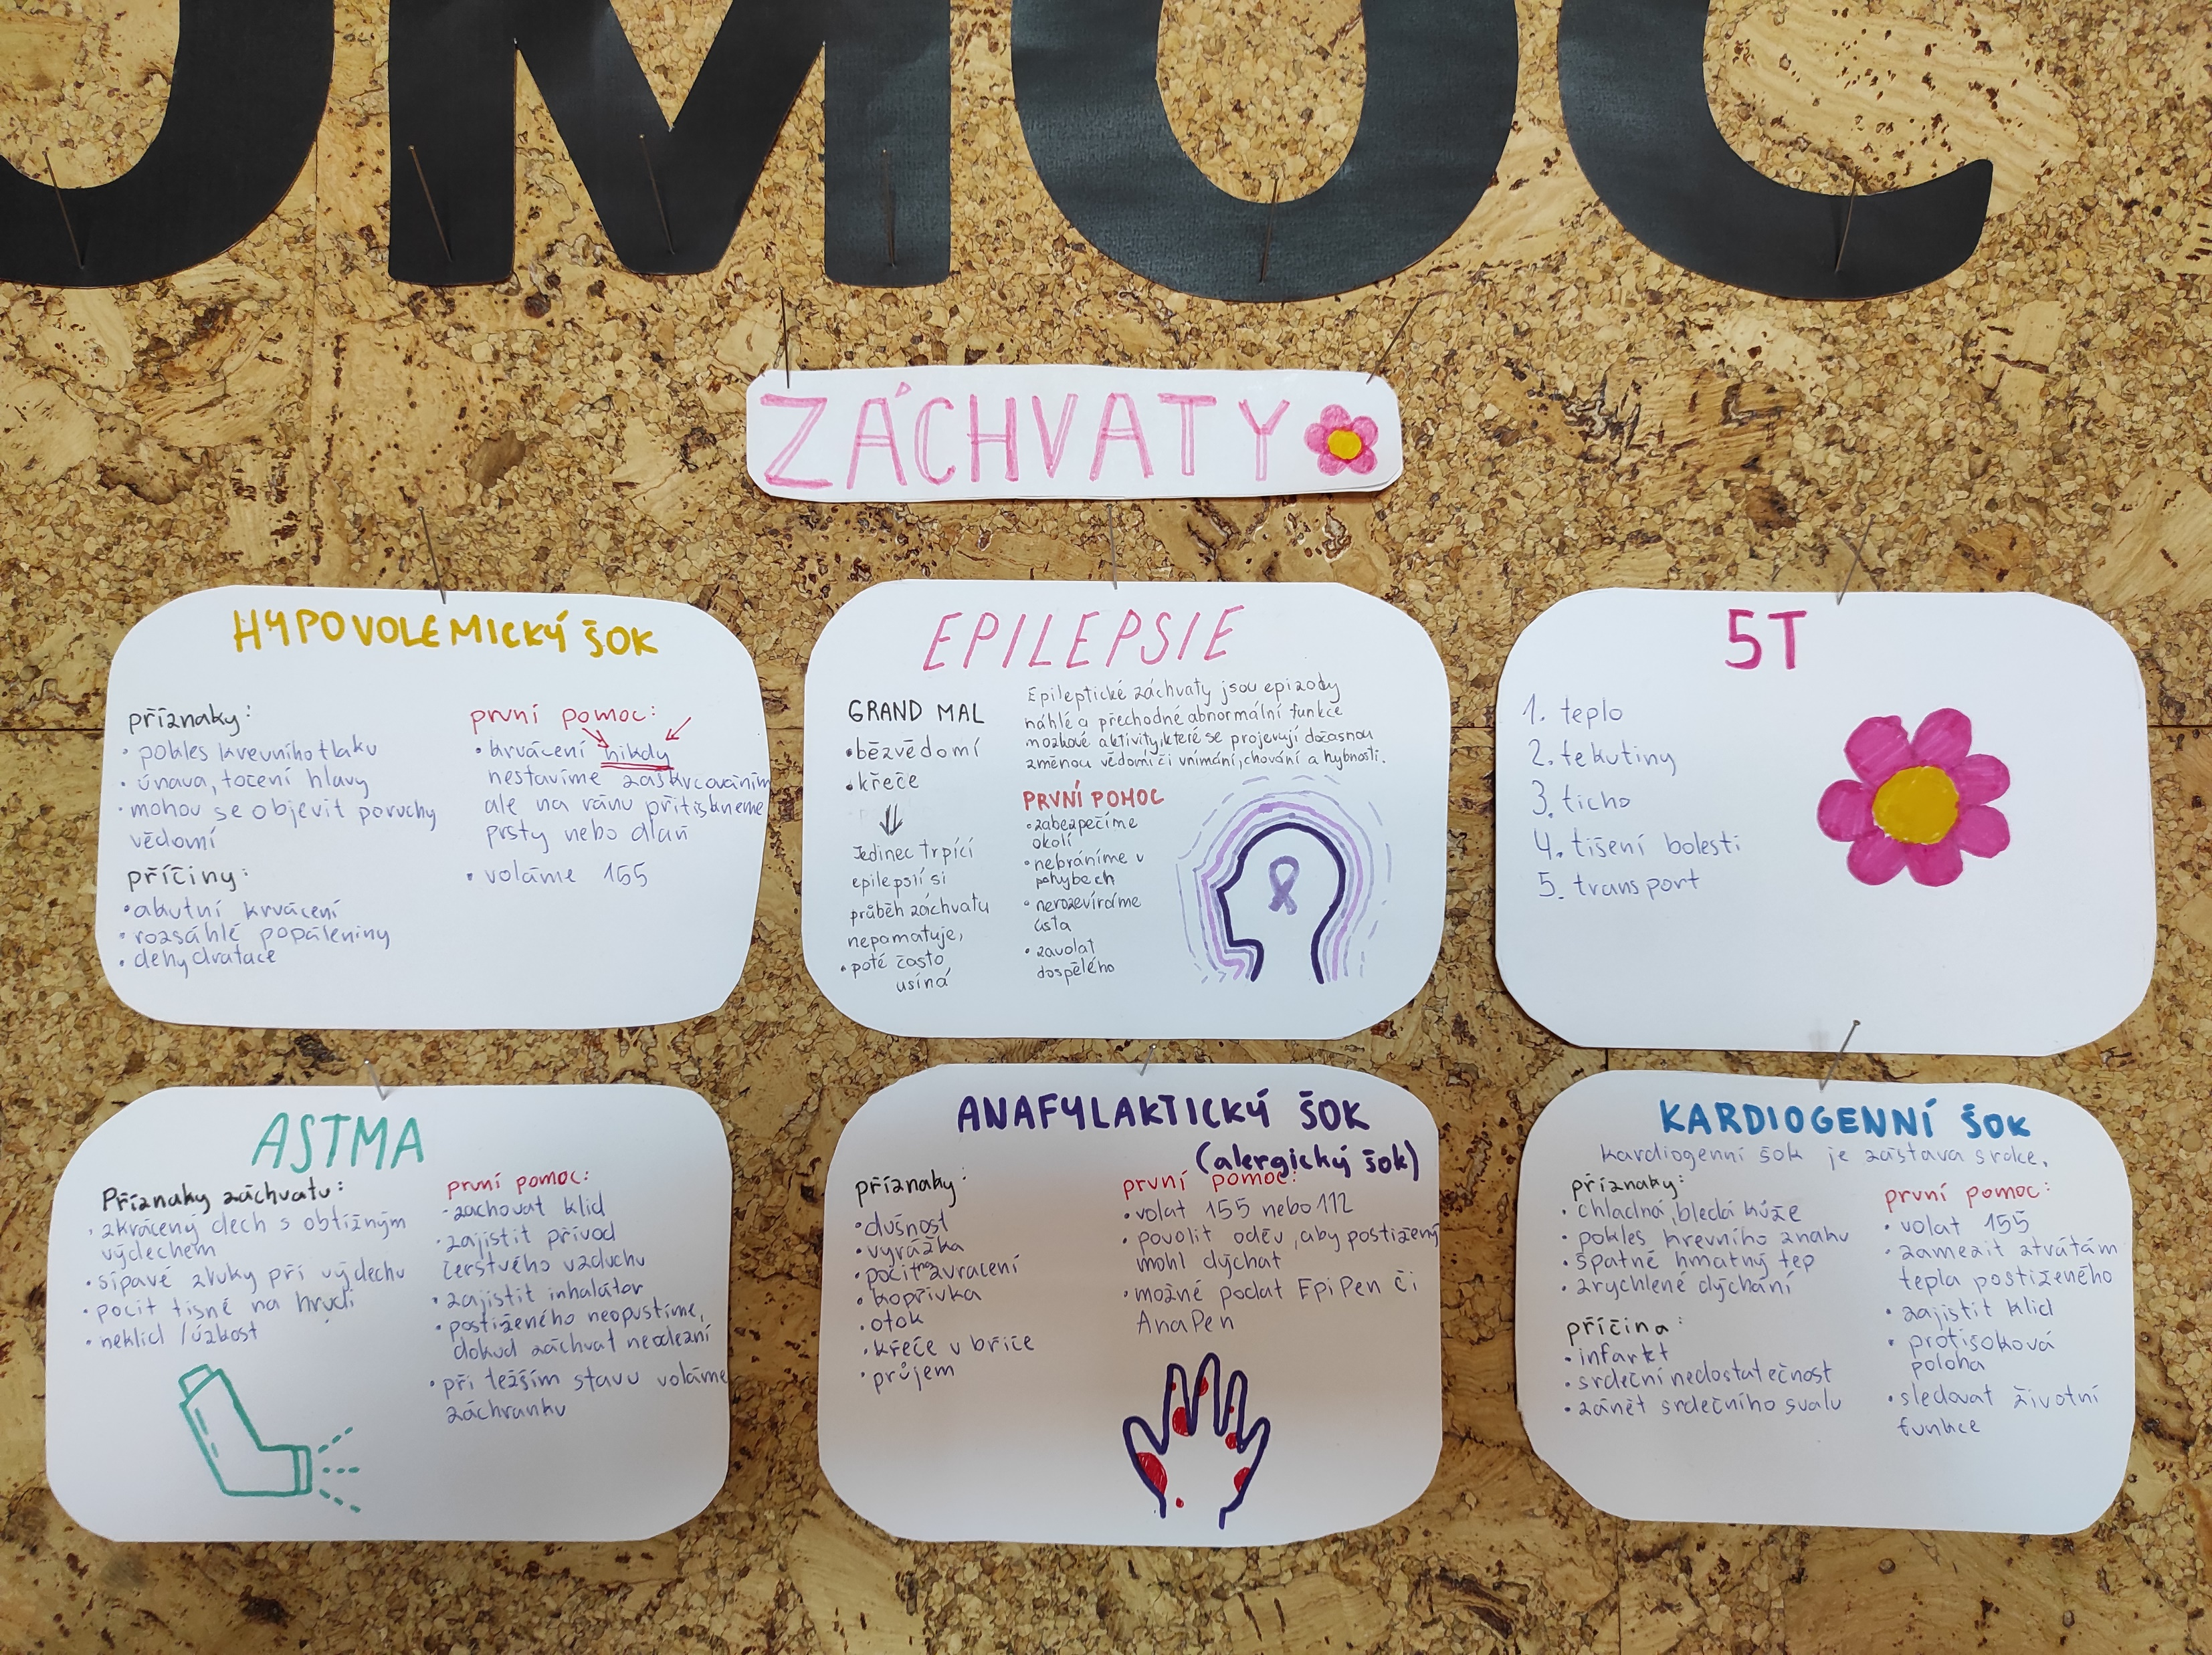 OMOC
ZÁCHVATY
HYPOVOLEMICKÝ ŠOK
příznaky:
• pokles krevního tlaku
• únava, točení hlavy
• mohou se objevit poruchy
vědomí
příčiny:
• akutní krvácení
• rozsáhlé popáleniny
• dehydratace
první pomoc:
• krvácení nikdy
nestavíme zaškrcováním
ale na ránu přitiskneme
prsty nebo dlaň
• voláme 155
EPILEPSIE
GRAND MAL
• bezvědomí
• křeče
Jedinec trpící
epilepsií si
průběh záchvatu
nepamatuje,
• poté často
usíná
Epileptické záchvaty jsou epizody
náhlé a přechodné abnormální funkce
mozkové aktivity, které se projevují dočasnou
změnou vědomí či vnímání, chování a hybnosti.
PRVNÍ POMOC
• zabezpečíme
okolí
• nebráníme v
pohybech
• nerozevíráme
ústa
• zavolat
dospělého
5T
1. teplo
2. tekutiny
3. ticho
4. tišení bolesti
5. transport
ASTMA
Příznaky záchvatu:
• zkrácený dech s obtížným
výdechem
• sípavé zvuky při výdechu
• pocit tísně na hrudi
• neklid / úzkost
první pomoc:
- zachovat klid
• zajistit přívod
čerstvého vzduchu
• zajistit inhalátor
• postiženého neopustíme,
dokud záchvat neodezní
• při težším stavu voláme
záchranku
ANAFYLAKTICKÝ ŠOK
(alergický šok)
příznaky:
• dušnost
• vyrážka
• pocit na zvracení
• kopřivka
• otok
• křeče v břiše
• průjem
první pomoc:
• volat 155 nebo 112
• povolit oděv, aby postižený
mohl dýchat
• možné podat EpiPen či
AnaPen
KARDIOGENNÍ ŠOK
Kardiogenní šok je zástava srdce.
příznaky:
• chladná, bledá kůže
• pokles krevního znaku
• špatně hmatný tep
• zrychlené dýchání
příčina:
• infarkt
• srdeční nedostatečnost
• zánět srdečního svalu
první pomoc:
• volat 155
• zamezit ztrátám
tepla postiženého
• zajistit klid
• protišoková
poloha
• sledovat životní
funkce